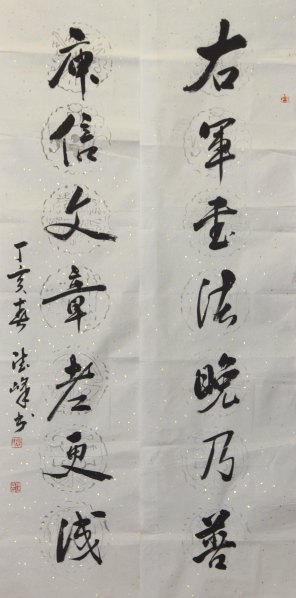 右軍書法晚乃善
庾信文章老更成
丁亥春德峰书